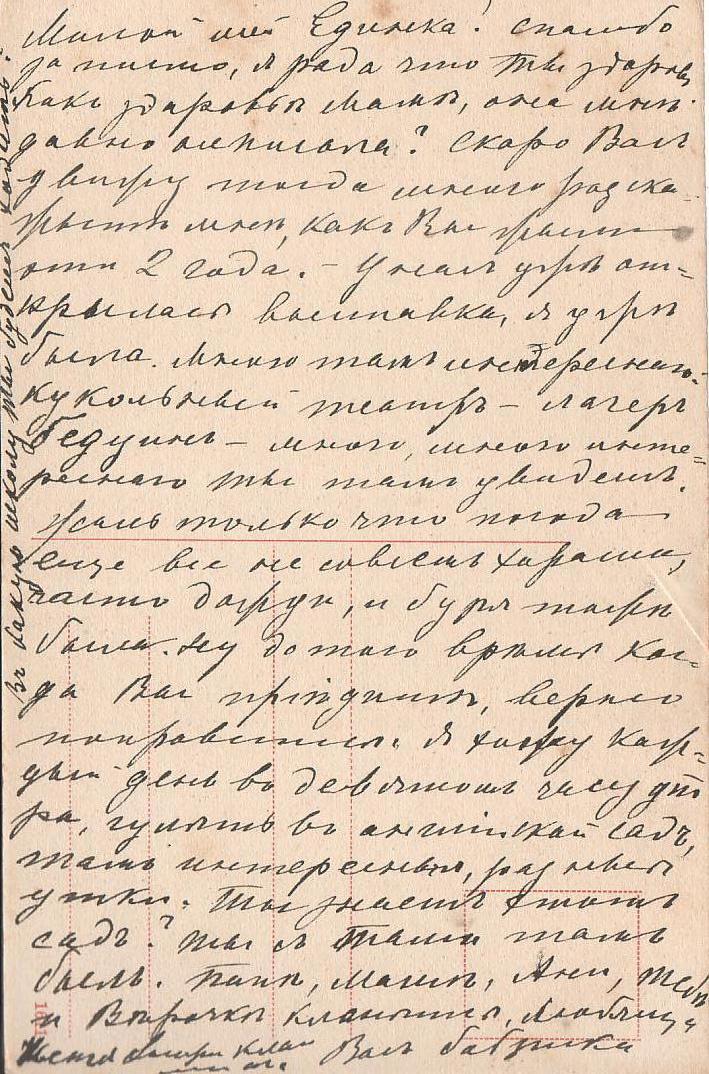 Милой мой Единька! спасибо
за письмо, я рада что ты здоровъ,
Какъ здоровье Мамы, она мнѣ
давно не писала? Скоро Васъ
увижу тогда много раска-
жешь мнѣ, какъ Вы жили
эти 2 года. – У насъ уже от=
крылась выставка, я уже
была. Много тамъ интереснаго.
кукольный театръ – лагерь
Бедуинъ – много, много инте=
реснаго ты тамъ увидешь.
Жаль только что погода
еще все не совсемъ хороша,
часто дожди, и буря тоже
была. Ну до того время ког-
да Вы приѣдите, верно
поправится. Я хожу каж=
дый день во девятомъ часу ут
ра, гулять во английской садъ,
тамъ интересныя, разныя
утки. Ты знаешь этотъ
садъ? ты съ тамъ
былъ. Папѣ, Мамѣ, Ани, тебѣ
и Вѣрочкѣ кланяюсь, Любящая
Васъ бабушка
Въ какую школу ты будешь ходить?